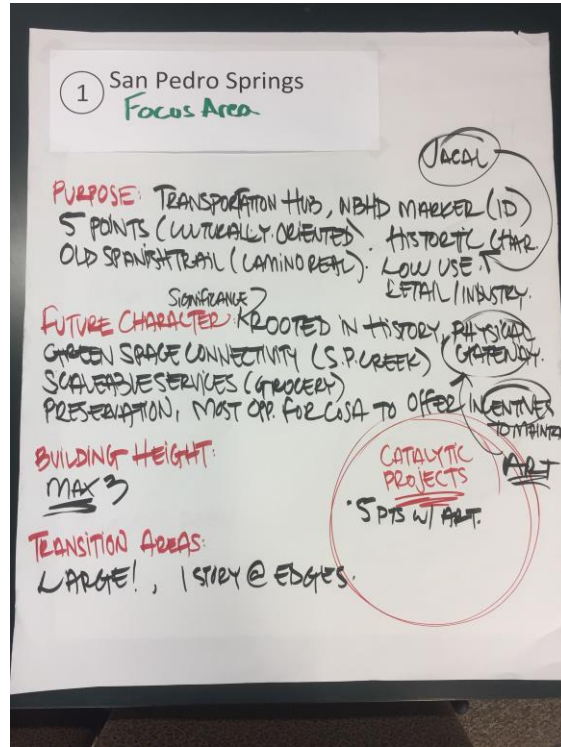 1 San Pedro Springs
Focus Area
JACAL
PURPOSE: TRANSPORTATION HUB, NBHD MARKER (ID)
5 POINTS (CULTURALLY ORIENTED). HISTORTIC CHAR.
OLD SPANISH TRAIL (CAMINO REAL). LOW USE.
RETAIL/INDUSTRY.
SIGNIFICANCE
FUTURE CHARACTER: ROOTED IN HISTORY, PHYSICAL
GREEN SPACE CONNECTIVITY (S.P. CREEK) GATEWAY.
SCALEABLE SERVICES (GROCERY)
PRESERVATION, MOST OPP. FOR COSA TO OFFER INCENTIVES
TO MAINTAIN
ART
BUILDING HEIGHT:
MAX 3
CATALYTIC
PROJECTS
· 5 PTS W/ ART.
TRANSITION AREAS:
LARGE!, 1 STORY @ EDGES.